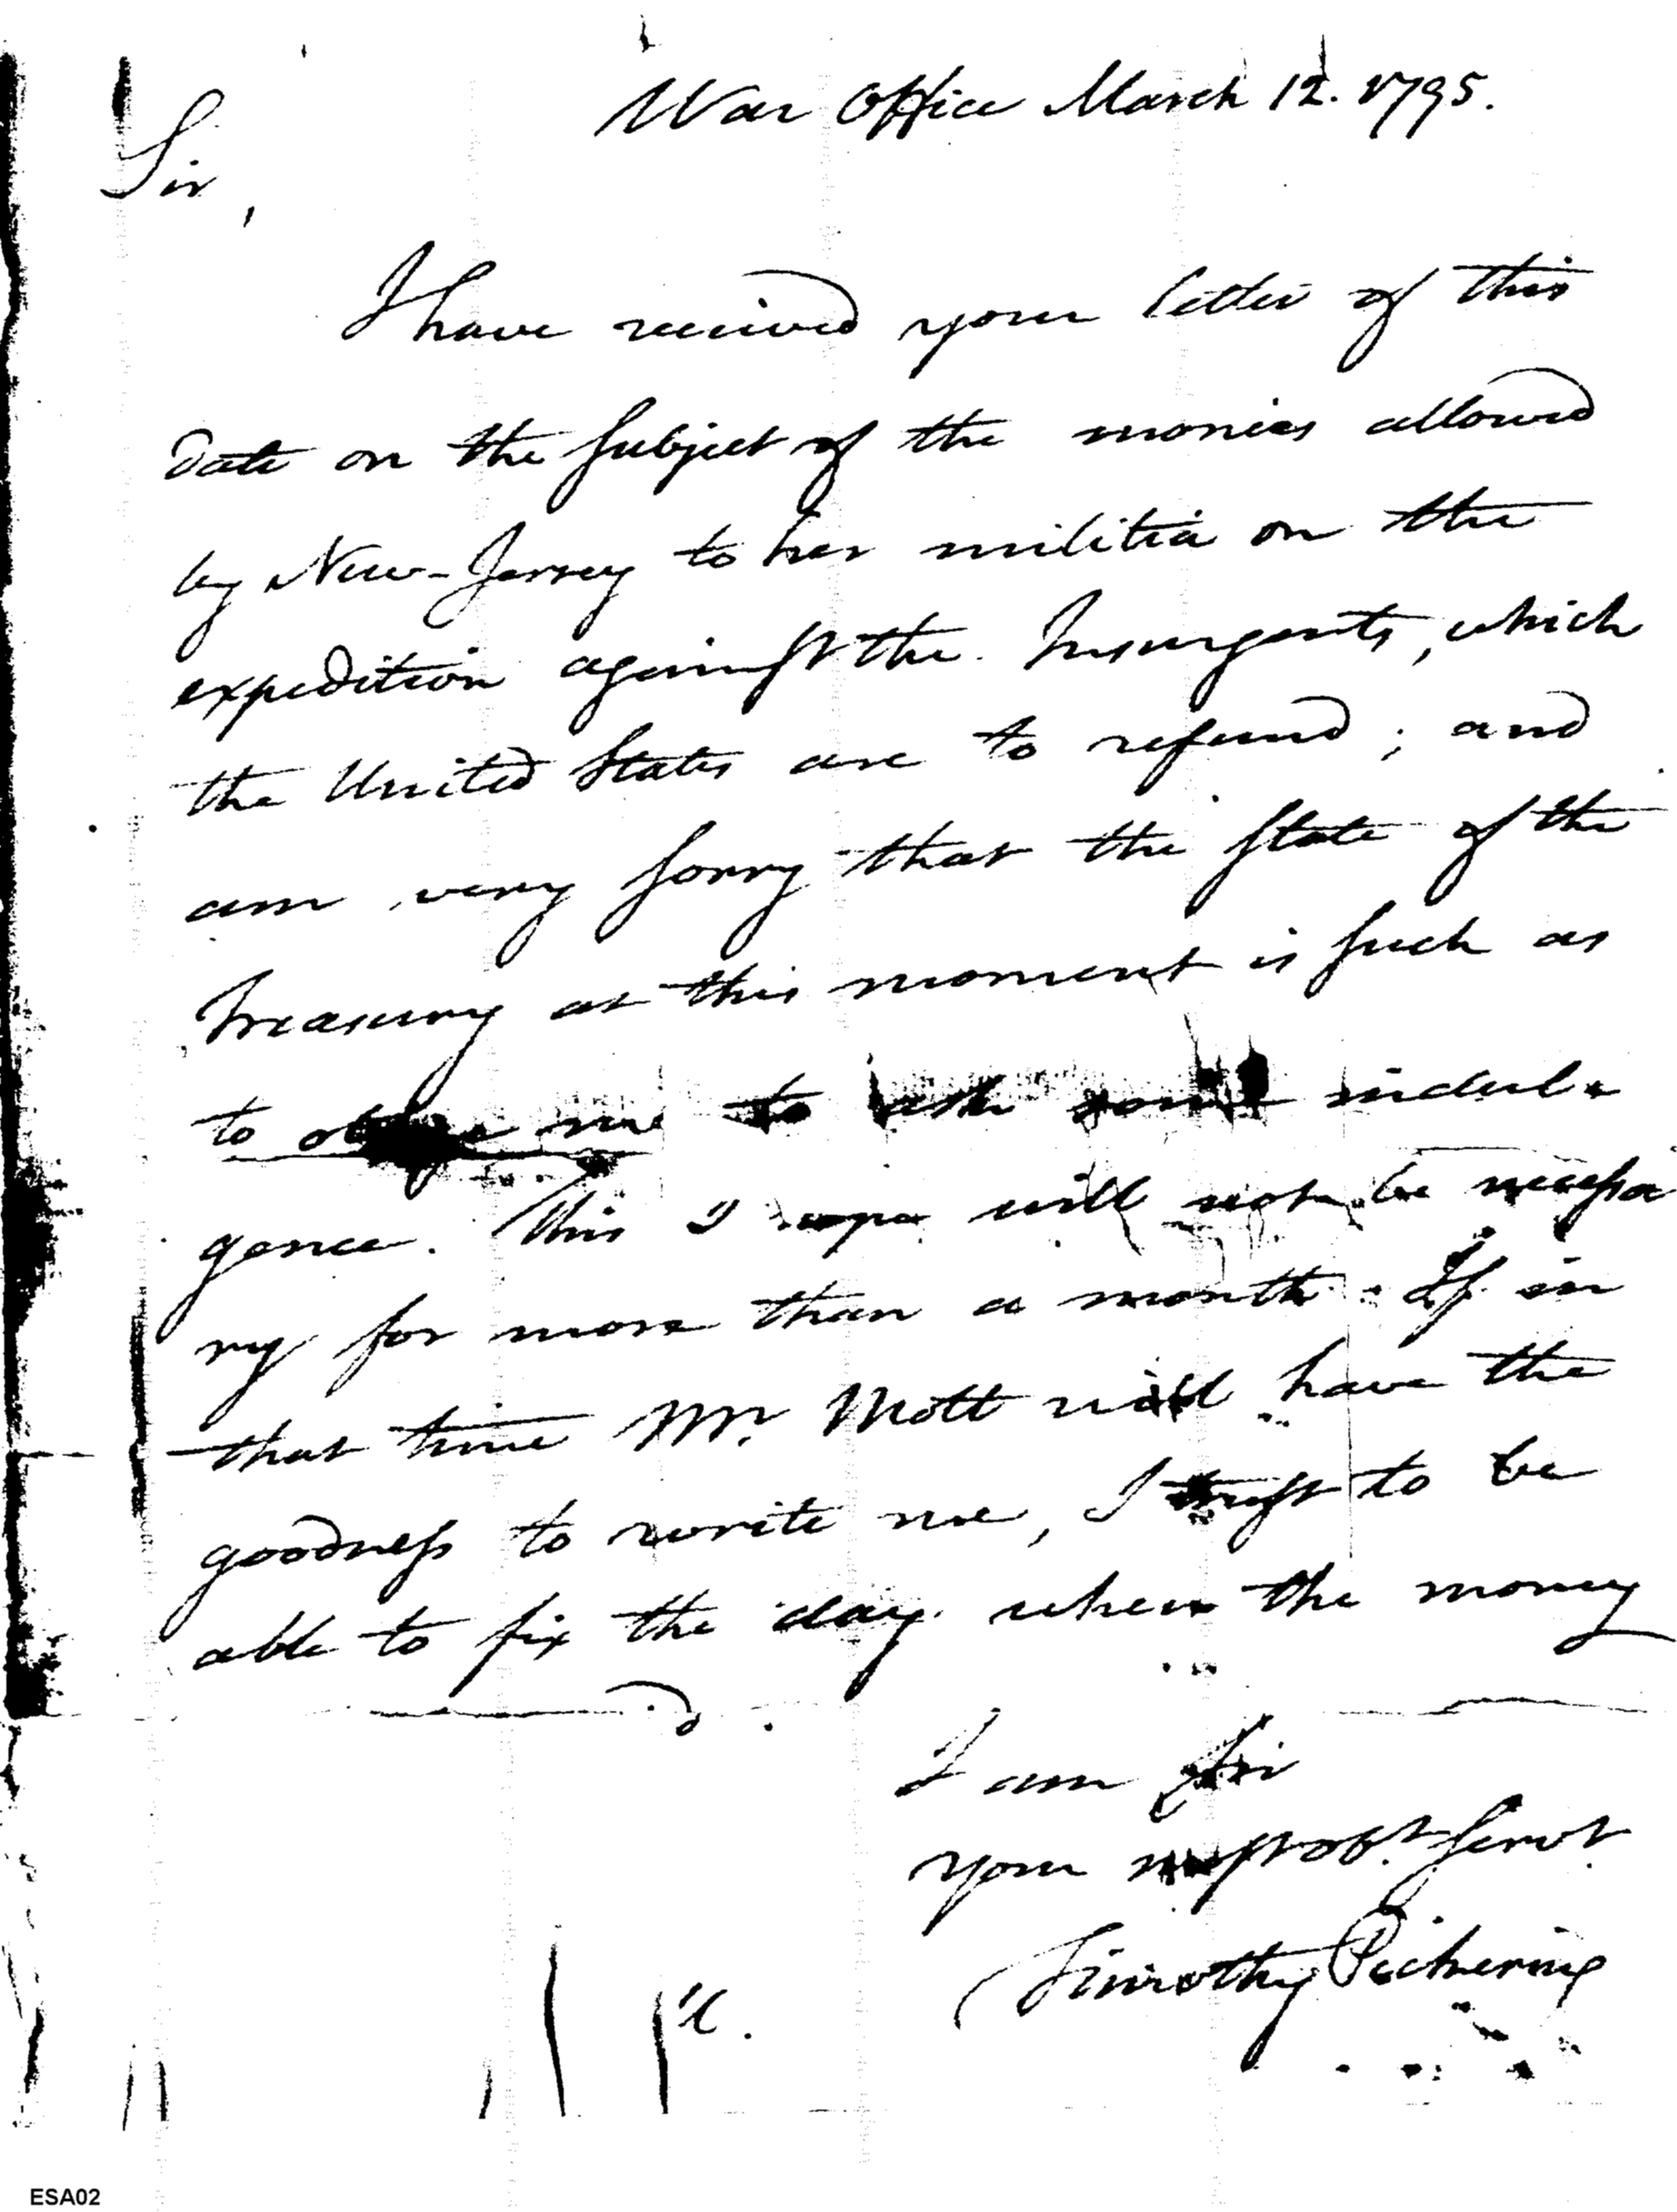 War Office March 12. 1795.
Sir,
I have received your letter of this
date on the subject of the monies allowed
by New-Jersey to her militia on the
expedition against the Insurgents, which
the United States are to refund; and
am very sorry that the state of the
Treasury at this moment is such as
to oblige me to ask some indul-
gence. This I hope will not be necessa
ry for more than a month. If in
that time Mr. Mott will have the
goodness to write me, I trust to be
able to fix the day when the money
I am Sir
your most obt. servt.
Timothy Pickering
ESA02